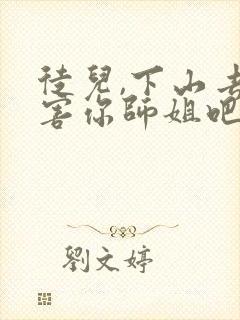 徒兒,下山去
害你師姐吧
劉文婷